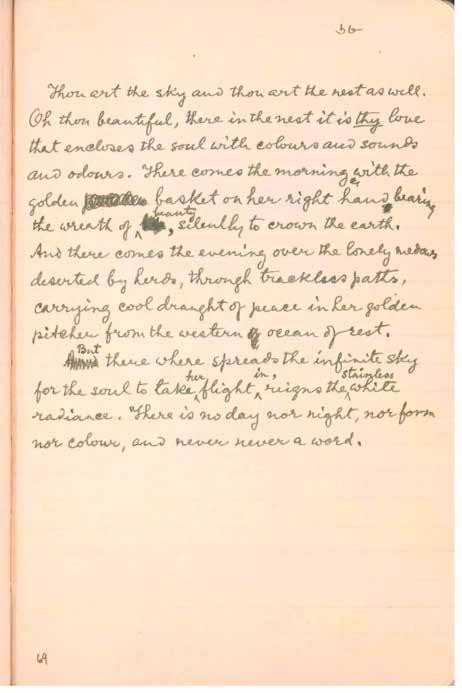 56
Thou art the sky and thou art the nest as well.
Oh thou beautiful, there in the nest it is thy love
that encloses the soul with colours and sounds
and odours. There comes the morning with the
golden basket on her right hand bearing
the wreath of beauty, silently to crown the earth.
And there comes the evening over the lonely medows
deserted by herds, through trackless paths,
carrying cool draught of peace in her golden
pitcher from the western ocean of rest.
But there where spreads the infinite sky
for the soul to take her flight in, reigns the stainless white
radiance. There is no day nor night, nor form
nor colour, and never never a word.
69